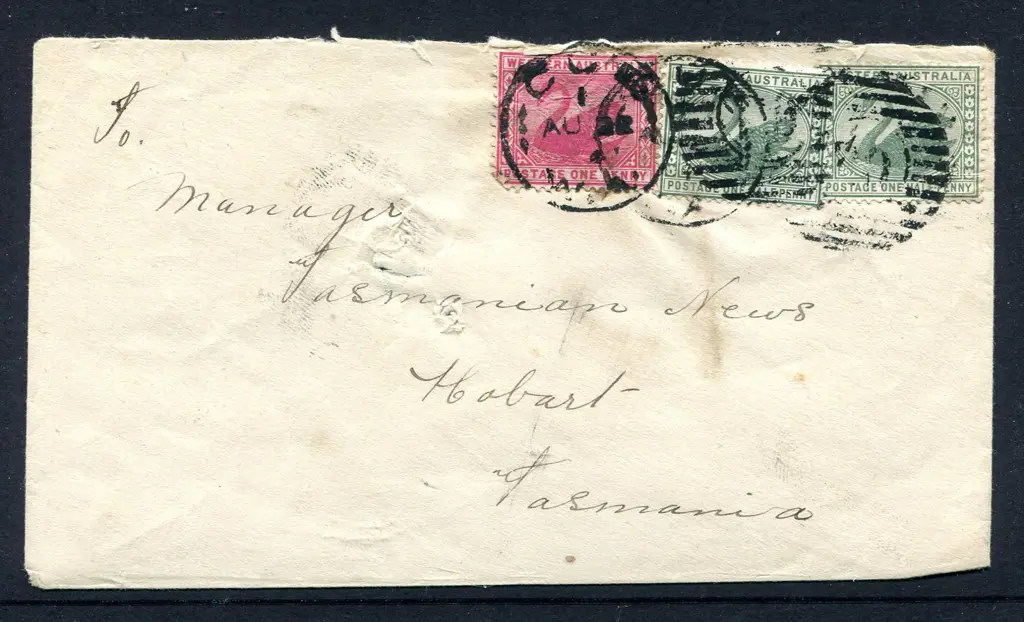 WESTERN AUSTRALIA
POSTAGE ONE PENNY
AUSTRALIA
POSTAGE HALFPENNY
WESTERN AUSTRALIA
POSTAGE ONE HALFPENNY
CUE
1
AU
W.A
To.
Manager
Tasmanian News
Hobart
Tasmania